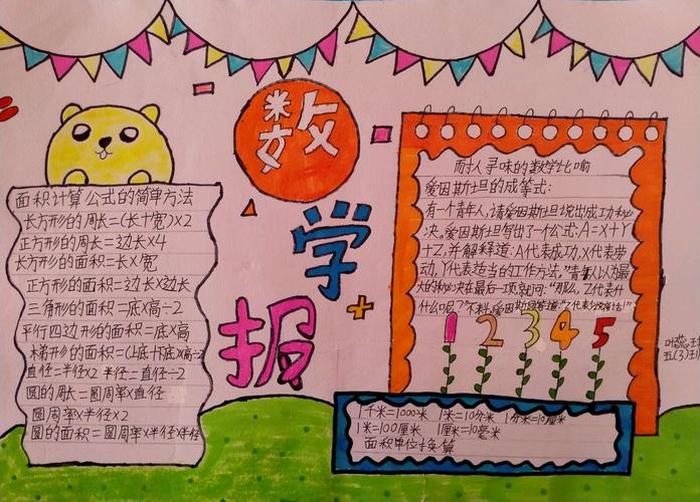 数
学
报
面积计算公式的简单方法
长方形的周长=(长+宽)×2
正方形的周长=边长×4
长方形的面积=长×宽
正方形的面积=边长×边长
三角形的面积=底×高÷2
平行四边形的面积=底×高
梯形的面积=(上底+下底)×高÷2
直径=半径×2 半径=直径÷2
圆的周长=圆周率×直径
圆周率×半径×2
圆的面积=圆周率×半径×半径
耐人寻味的数学比喻
爱因斯坦的成等式:
有一个青年人,请爱因斯坦说出成功秘
决。爱因斯坦写出了一个公式:A=X+Y
+Z,并解释道:A代表成功,X代表劳
动,Y代表适当的工作方法,"青年人以为最
大的秘决在最后一项就问:"那么,Z代表什
什么呢?"不料,爱因斯坦答道:"Z代表少说
1 2 3 4 5
1千米=1000米 1米=10分米 1分米=10厘米
1米=100厘米 1厘米=10毫米
面积单位换算
五(3)班